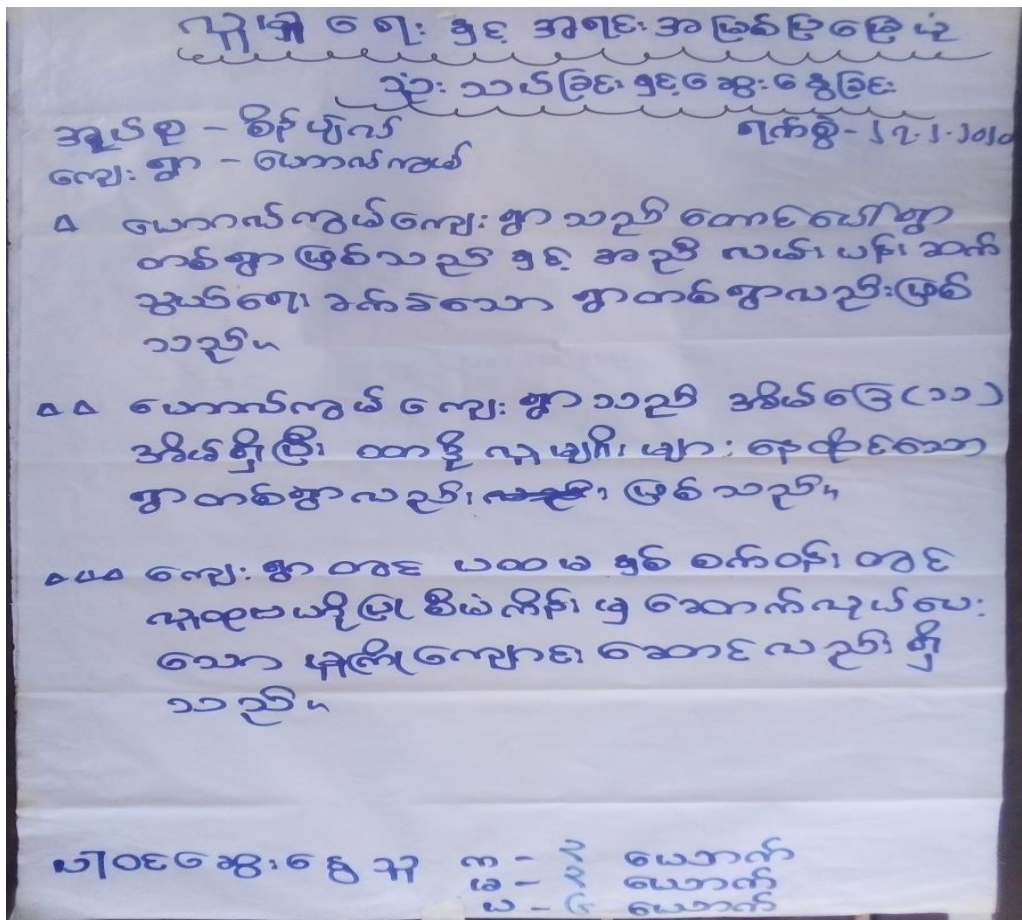 လူမှု ရေး နှင့် အရင်းအမြစ်ပြမြေပုံ
သုံး သပ်ခြင်း နှင့်ဆွေး နွေးခြင်း
အုပ်စု – စိန်ပျဲလ်
ရက်စွဲ – ၂၇.၂.၂၀၂၀
ကျေး ရွာ – ယောလ်ကွယ်
△ ယောလ်ကွယ်ကျေး ရွာ သည် တောင်ပေါ်ရွာ
တစ်ရွာ ဖြစ်သည် နှင့် အညီ လမ်း ပန်း ဆက်
သွယ်ရေး ခက်ခဲသော ရွာတစ်ရွာလည်းဖြစ်
သည်။
△ △ ယောလ်ကွယ် ကျေး ရွာ သည် အိမ်ခြေ (၁၁)
အိမ်ရှိပြီး လူမျိုး များ နေထိုင်သော
ရွာတစ်ရွာ လည်း ဖြစ်သည်။
△△△ ကျေး ရွာ တွင် ပထမ နှစ် စက်ဝန်း တွင်
လူထုဗဟိုပြု စီမံကိန်း မှ ဆောက်လုပ်ပေး
သော မူကြို ကျောင်း ဆောင် လည်း ရှိ
သည်။
ပါဝင်ဆွေး နွေး သူ က – ၃ ယောက်
မ – ၃ ယောက်
ပ – ၆ ယောက်